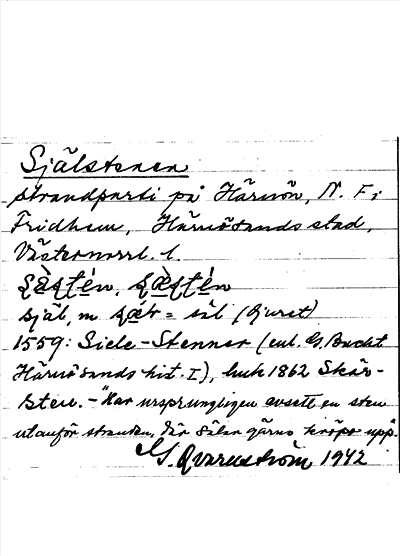 Själstenen
strandparti på Härnön, N. F i
Fridhem, Härnösands stad,
Västernorrl. l.
själ, m. = säl (djuret)
1559: Siele-Stenner (enl. G. Bucht
Härnösands hist. I), 1862 Skär-
sten. - "Har ursprungligen avsett en sten
utanför stranden, där sälar gärna kröpo upp".
G. Qvarnström 1942